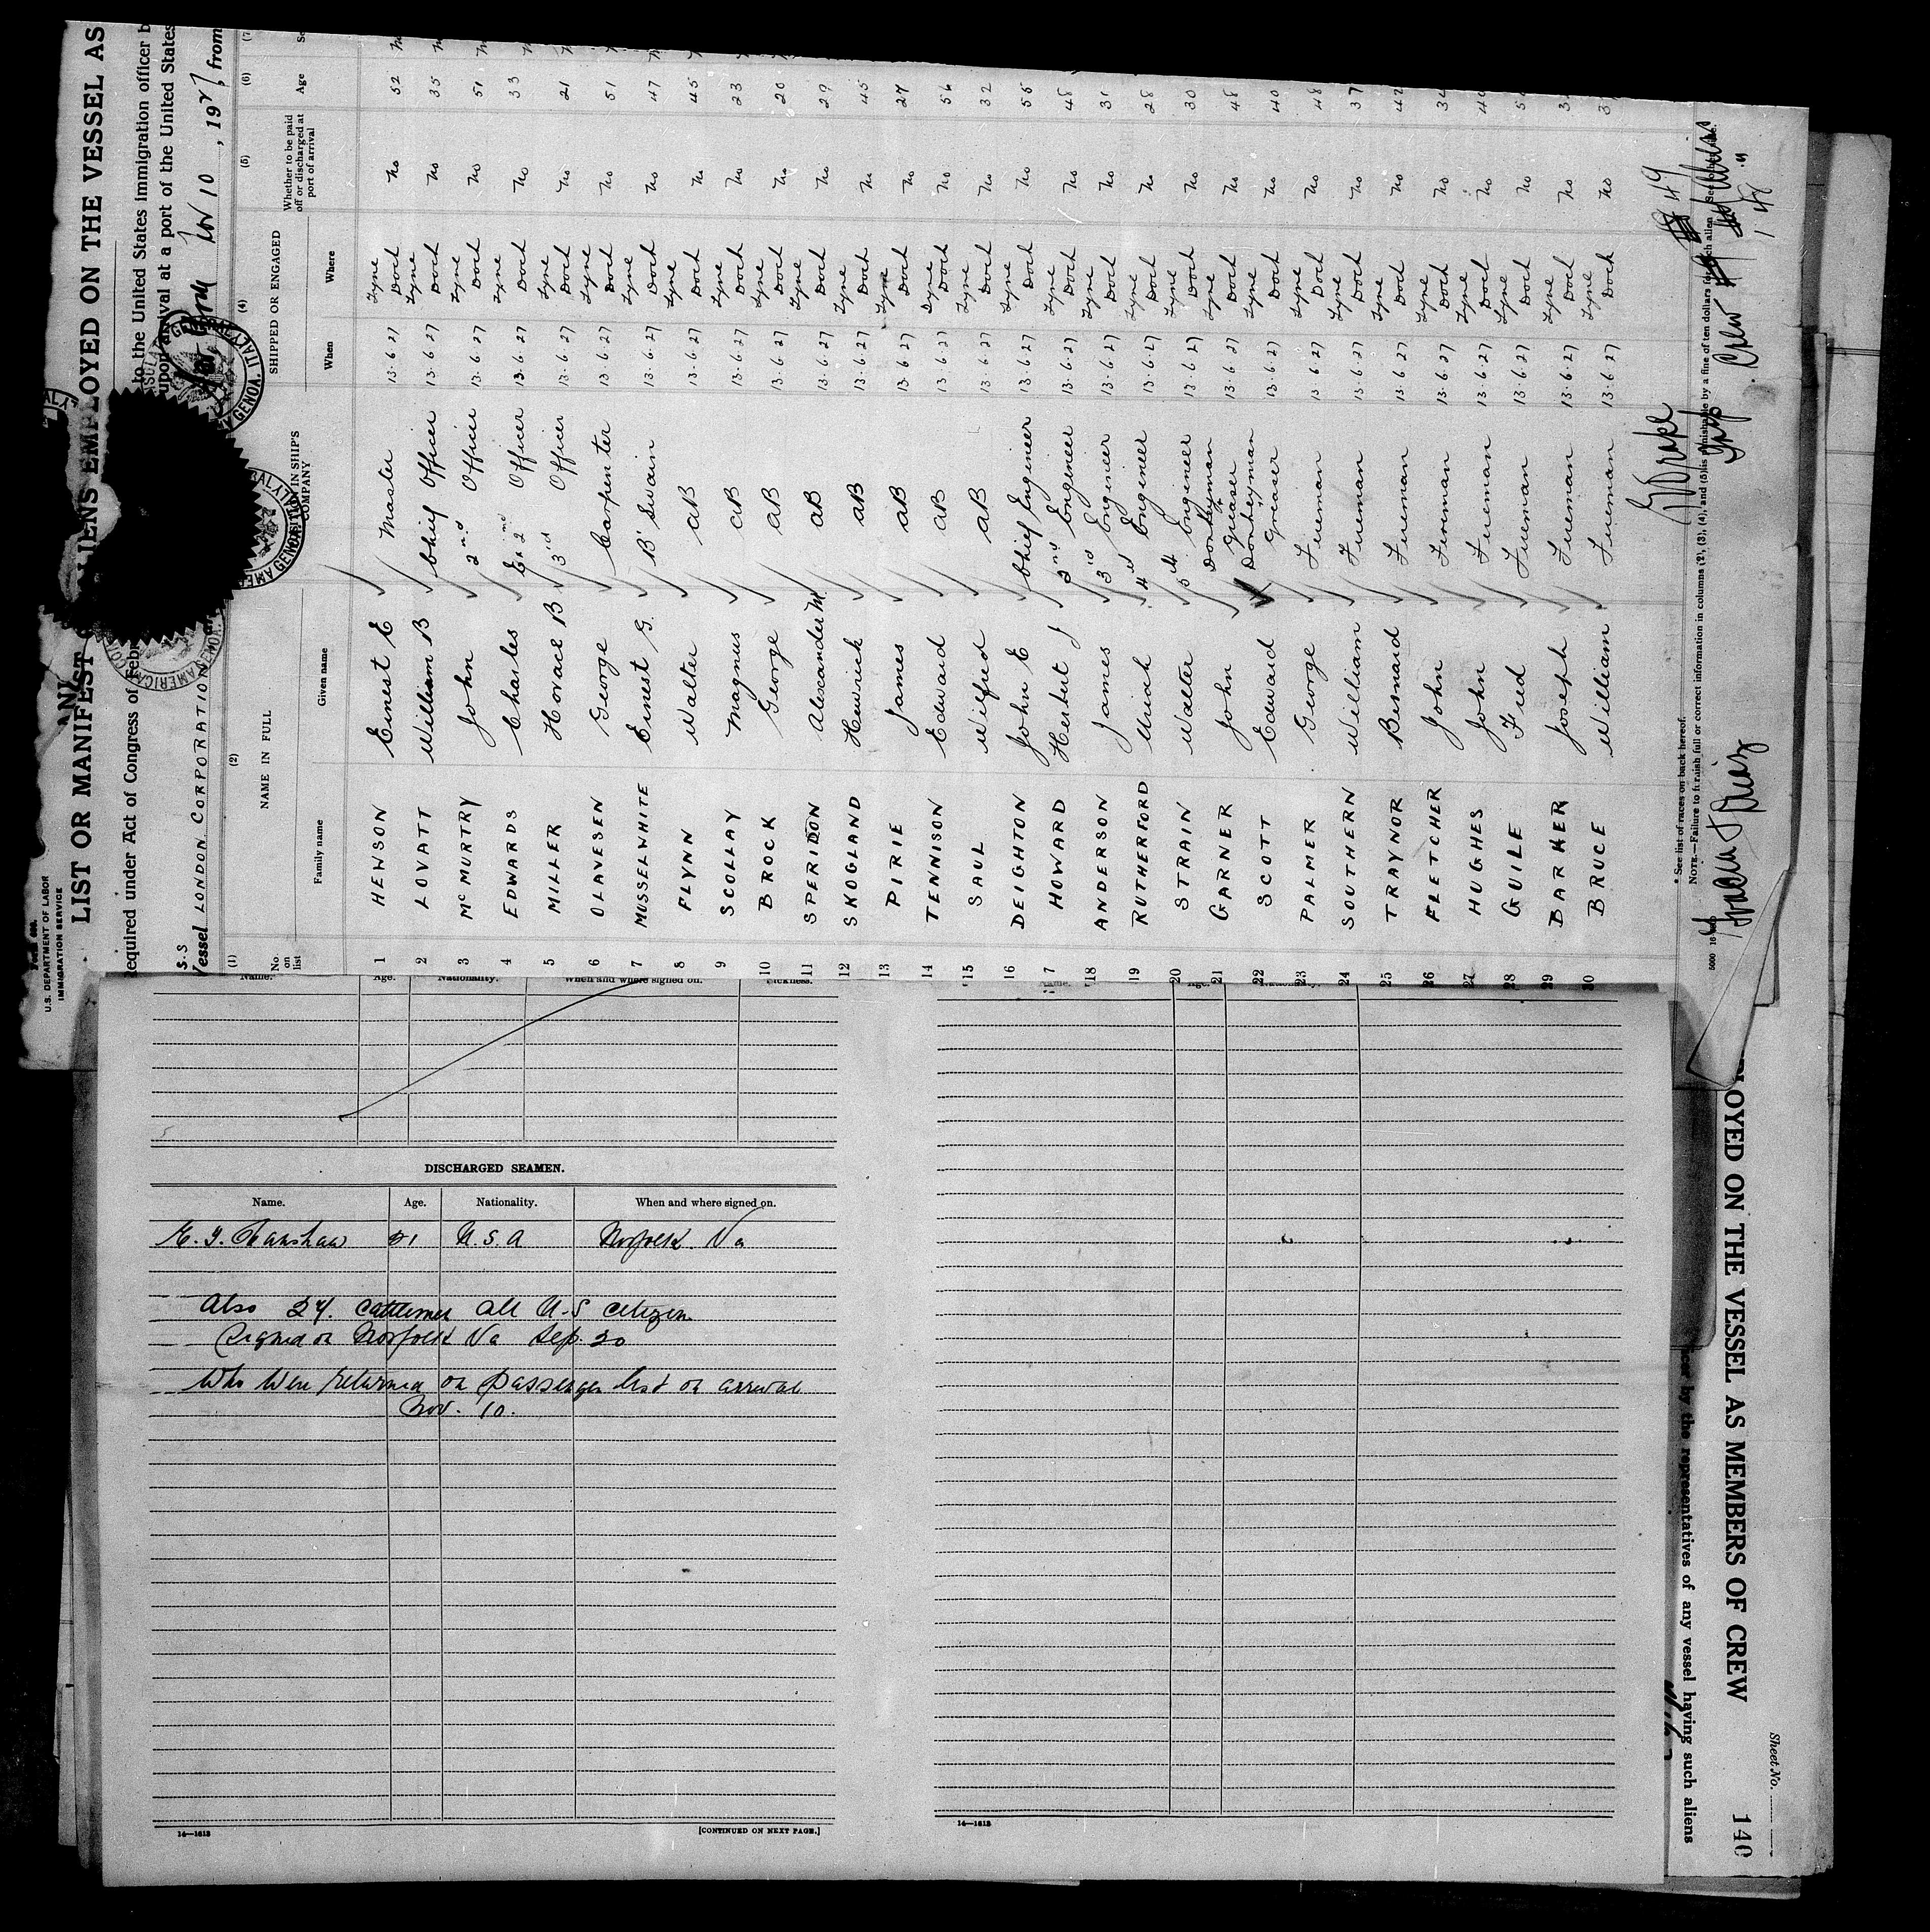 Form 680.
U.S. DEPARTMENT OF LABOR
IMMIGRATION SERVICE
LIST OR MANIFEST ALIENS EMPLOYED ON THE VESSEL AS
Required under Act of Congress of to the United States immigration officer
upon arrival at a port of the United States
S.S
Vessel LONDON CORPORATION Nov 10, 19 from
(1) (2) (4) (5) (6) (7)
No. on list NAME IN FULL POSITION IN SHIP'S COMPANY SHIPPED OR ENGAGED Whether to be paid off or discharged at port of arrival Age
Family name Given name When Where
1 HEWSON Ernest E Master 13.6.27 Tyne Dock No 52
2 LOVATT William B Chief Officer 13.6.27 Tyne Dock No 35
3 McMURTRY John 2nd Officer 13.6.27 Tyne Dock No 51
4 EDWARDS Charles Ex 2nd Officer 13.6.27 Tyne Dock No 33
5 MILLER Horace B 3rd Officer 13.6.27 Tyne Dock No 21
6 OLAVESEN George Carpenter 13.6.27 Tyne Dock No 51
7 MUSSELWHITE Ernest G. B' Swain 13.6.27 Tyne Dock No 47
8 FLYNN Walter AB 13.6.27 Tyne Dock No 45
9 SCOLLAY Magnus AB 13.6.27 Tyne Dock No 23
10 BROCK George AB 13.6.27 Tyne Dock No 20
11 SPERIDON Alexander M AB 13.6.27 Tyne Dock No 29
12 SKOGLAND Henrick AB 13.6.27 Tyne Dock No 45
13 PIRIE James AB 13.6.27 Tyne Dock No 27
14 TENNISON Edward AB 13.6.27 Tyne Dock No 56
15 SAUL Wilfred AB 13.6.27 Tyne Dock No 32
16 DEIGHTON John E Chief Engineer 13.6.27 Tyne Dock No 55
17 HOWARD Herbert J 2nd Engineer 13.6.27 Tyne Dock No 48
18 ANDERSON James 3rd Engineer 13.6.27 Tyne Dock No 31
19 RUTHERFORD Uriah 4th Engineer 13.6.27 Tyne Dock No 28
20 STRAIN Walter 5th Engineer 13.6.27 Tyne Dock No 30
21 GARNER John Donkeyman + Greaser 13.6.27 Tyne Dock No 48
22 SCOTT Edward Donkeyman + Greaser 13.6.27 Tyne Dock No 40
23 PALMER George Fireman 13 6.27 Tyne Dock No 48
24 SOUTHERN William Fireman 13.6.27 Tyne Dock No 37
25 TRAYNOR Bernard Fireman 13.6.27 Tyne Dock No 42
26 FLETCHER John Fireman 13.6.27 Tyne Dock No
27 HUGHES John Fireman 13.6.27 Tyne Dock No
28 GUILE Fred Fireman 13.6.27 Tyne Dock No
29 BARKER Joseph Fireman 13.6.27 Tyne Dock No
30 BRUCE William Fireman 13.6.27 Tyne Dock No
* See list of races on back hereof.
NOTE.—Failure to furnish full or correct information in columns (2), (3), (4), and (5) is punishable by a fine of ten dollars for each alien.
Crew
149
148
Name. Age. Nationality. When and where signed on. Sickness.
DISCHARGED SEAMEN.
Name. Age. Nationality. When and where signed on.
21 U.S.A Norfolk Va
Also 27. Cattlemen all U.S citizen
Signed on Norfolk Va Sep. 20
Who were returned on passenger list on arrival
Nov. 10.
14—1613
[CONTINUED ON NEXT PAGE.]
14—1613
PLOYED ON THE VESSEL AS MEMBERS OF CREW
by the representatives of any vessel having such aliens
Sheet No.
140